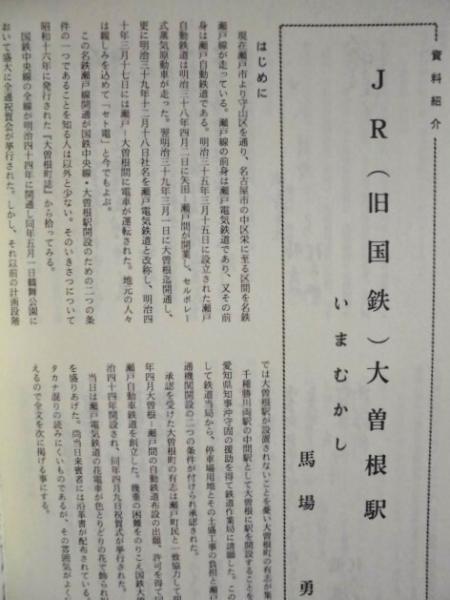 資料紹介
JR(旧国鉄)大曽根駅
いまむかし
馬場 勇
はじめに
現在瀬戸市より守山区を通り、名古屋市の中区栄に至る区間を名鉄
瀬戸線が走っている。瀬戸線の前身は瀬戸電気鉄道であり、又その前
身は瀬戸自動鉄道である。明治三十五年三月十五日に設立された瀬戸
自動鉄道は明治三十八年四月二日に矢田―瀬戸間が開業し、セルポレー
式蒸気原動車が走った。翌明治三十九年三月一日に大曽根迄開通し、
更に明治三十九年十二月十八日社名を瀬戸電気鉄道と改称し、明治四
十年三月十七日には瀬戸―大曽根間に電車が運転された。地元の人々
は親しみを込めて「セト電」と今でもよぶ。
この名鉄瀬戸線開通が国鉄中央線・大曽根駅開設のための二つの条
件の一つであることを知る人は以外と少ない。そのいきさつについて
昭和十六年に発行された『大曽根町誌』から拾ってみる。
国鉄中央線の全線が明治四十四年に開通し同年五月一日鶴舞公園に
おいて盛大に全通祝賀会が挙行された。しかし、それ以前の計画段階
では大曽根駅が設置されないことを憂い大曽根町の有志が集
千種勝川両駅の中間駅として大曽根に駅を開設することを
愛知県知事沖守固の援助を得て鉄道作業局に請願した。この
して鉄道当局から、停車場用地とその土盛工事の負担と瀬戸
通機関開設の二つの条件が付けられ承認された。
承認を受けた大曽根町の有志は瀬戸町民と一致協力して明
年四月大曽根―瀬戸間の自動鉄道布設の出願、許可を得て同
瀬戸自動車鉄道を創立した。幾重の困難をのりこえ国鉄大曽
治四十四年開設され、同年四月九日祝賀式が挙行された。
当日は瀬戸電気鉄道の花電車が色とりどりの花で飾られ祝
を盛りあげた。尚当日来賓者には沿革書が配布されている。
タカナ混りの読みにくいものであるが、その雰囲気がよく
えるので全文を次に掲げる事にする。